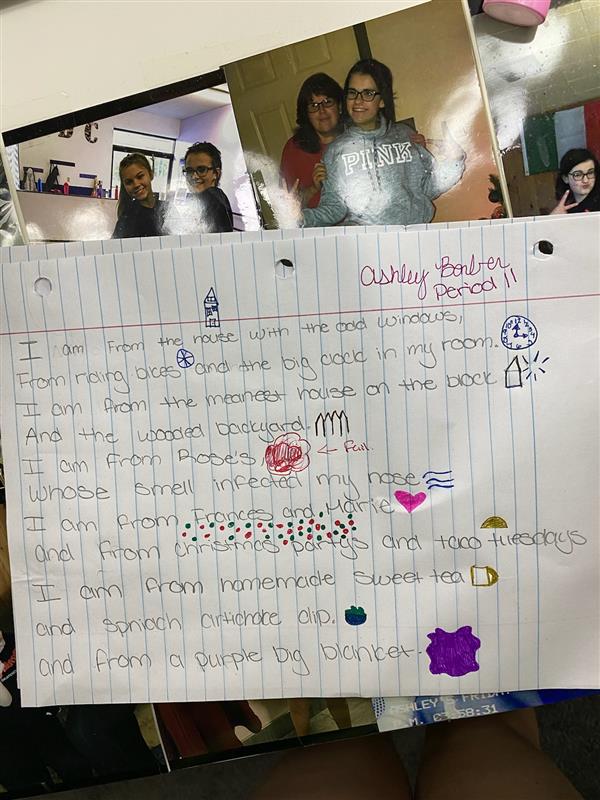 PINK
Ashley Borber
Period 11
I am from the house with the odd windows,
From riding bices and the big clock in my room.
I am from the meanest house on the block
And the wooded backyard.
I am from Rose's,
← Fail
whose smell infected my nose
I am from Frances and Marie
and from christmas partys and taco tuesdays
I am from homemade sweet tea
and spniach artichoke dip.
and from a purple big blanket.